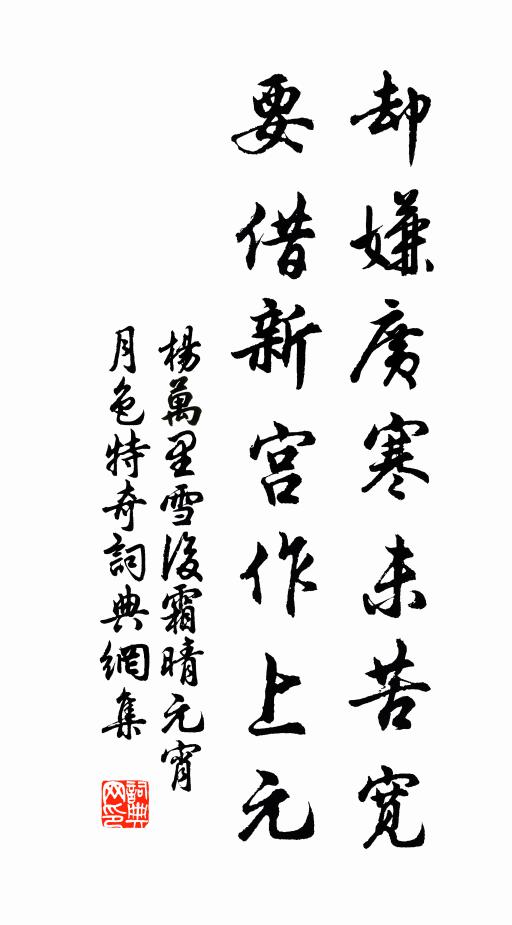 却嫌廣寒未苦寬
要借新宫作上元
楊萬里雪後霜晴元宵
月色特奇詞典網集
詞典
网印